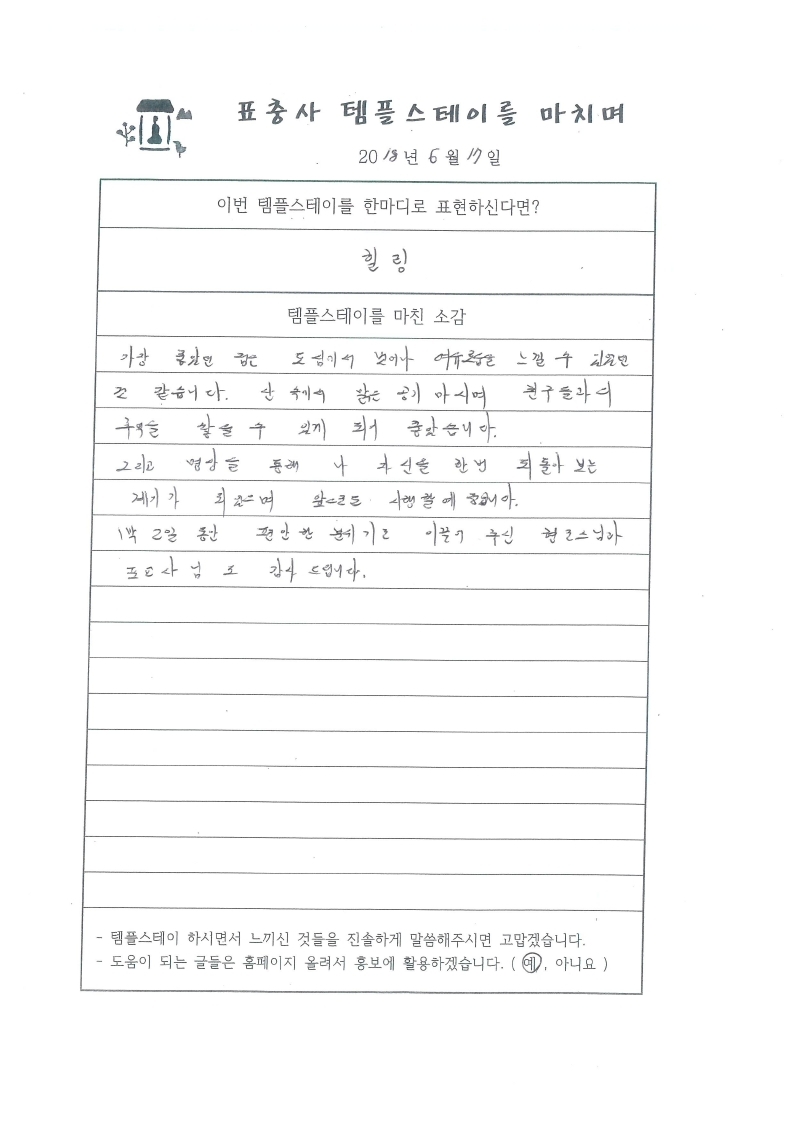 표충사 템플스테이를 마치며
2018년 6월 17일
이번 템플스테이를 한마디로 표현하신다면?
힐링
템플스테이를 마친 소감
가장 좋았던 점은 도심에서 벗어나 여유로움을 느낄 수 있었던
것 같습니다. 산 속에서 맑은 공기 마시며 친구들과의
추억을 쌓을 수 있게 되서 좋았습니다.
그리고 명상을 통해 나 자신을 한번 되돌아 보는
계기가 되었으며 앞으로도
1박 2일 동안 편안한 분위기로 이끌어 주신 스님과
감사 드립니다.
- 템플스테이 하시면서 느끼신 것들을 진솔하게 말씀해주시면 고맙겠습니다.
- 도움이 되는 글들은 홈페이지 올려서 홍보에 활용하겠습니다. ( 예, 아니요 )